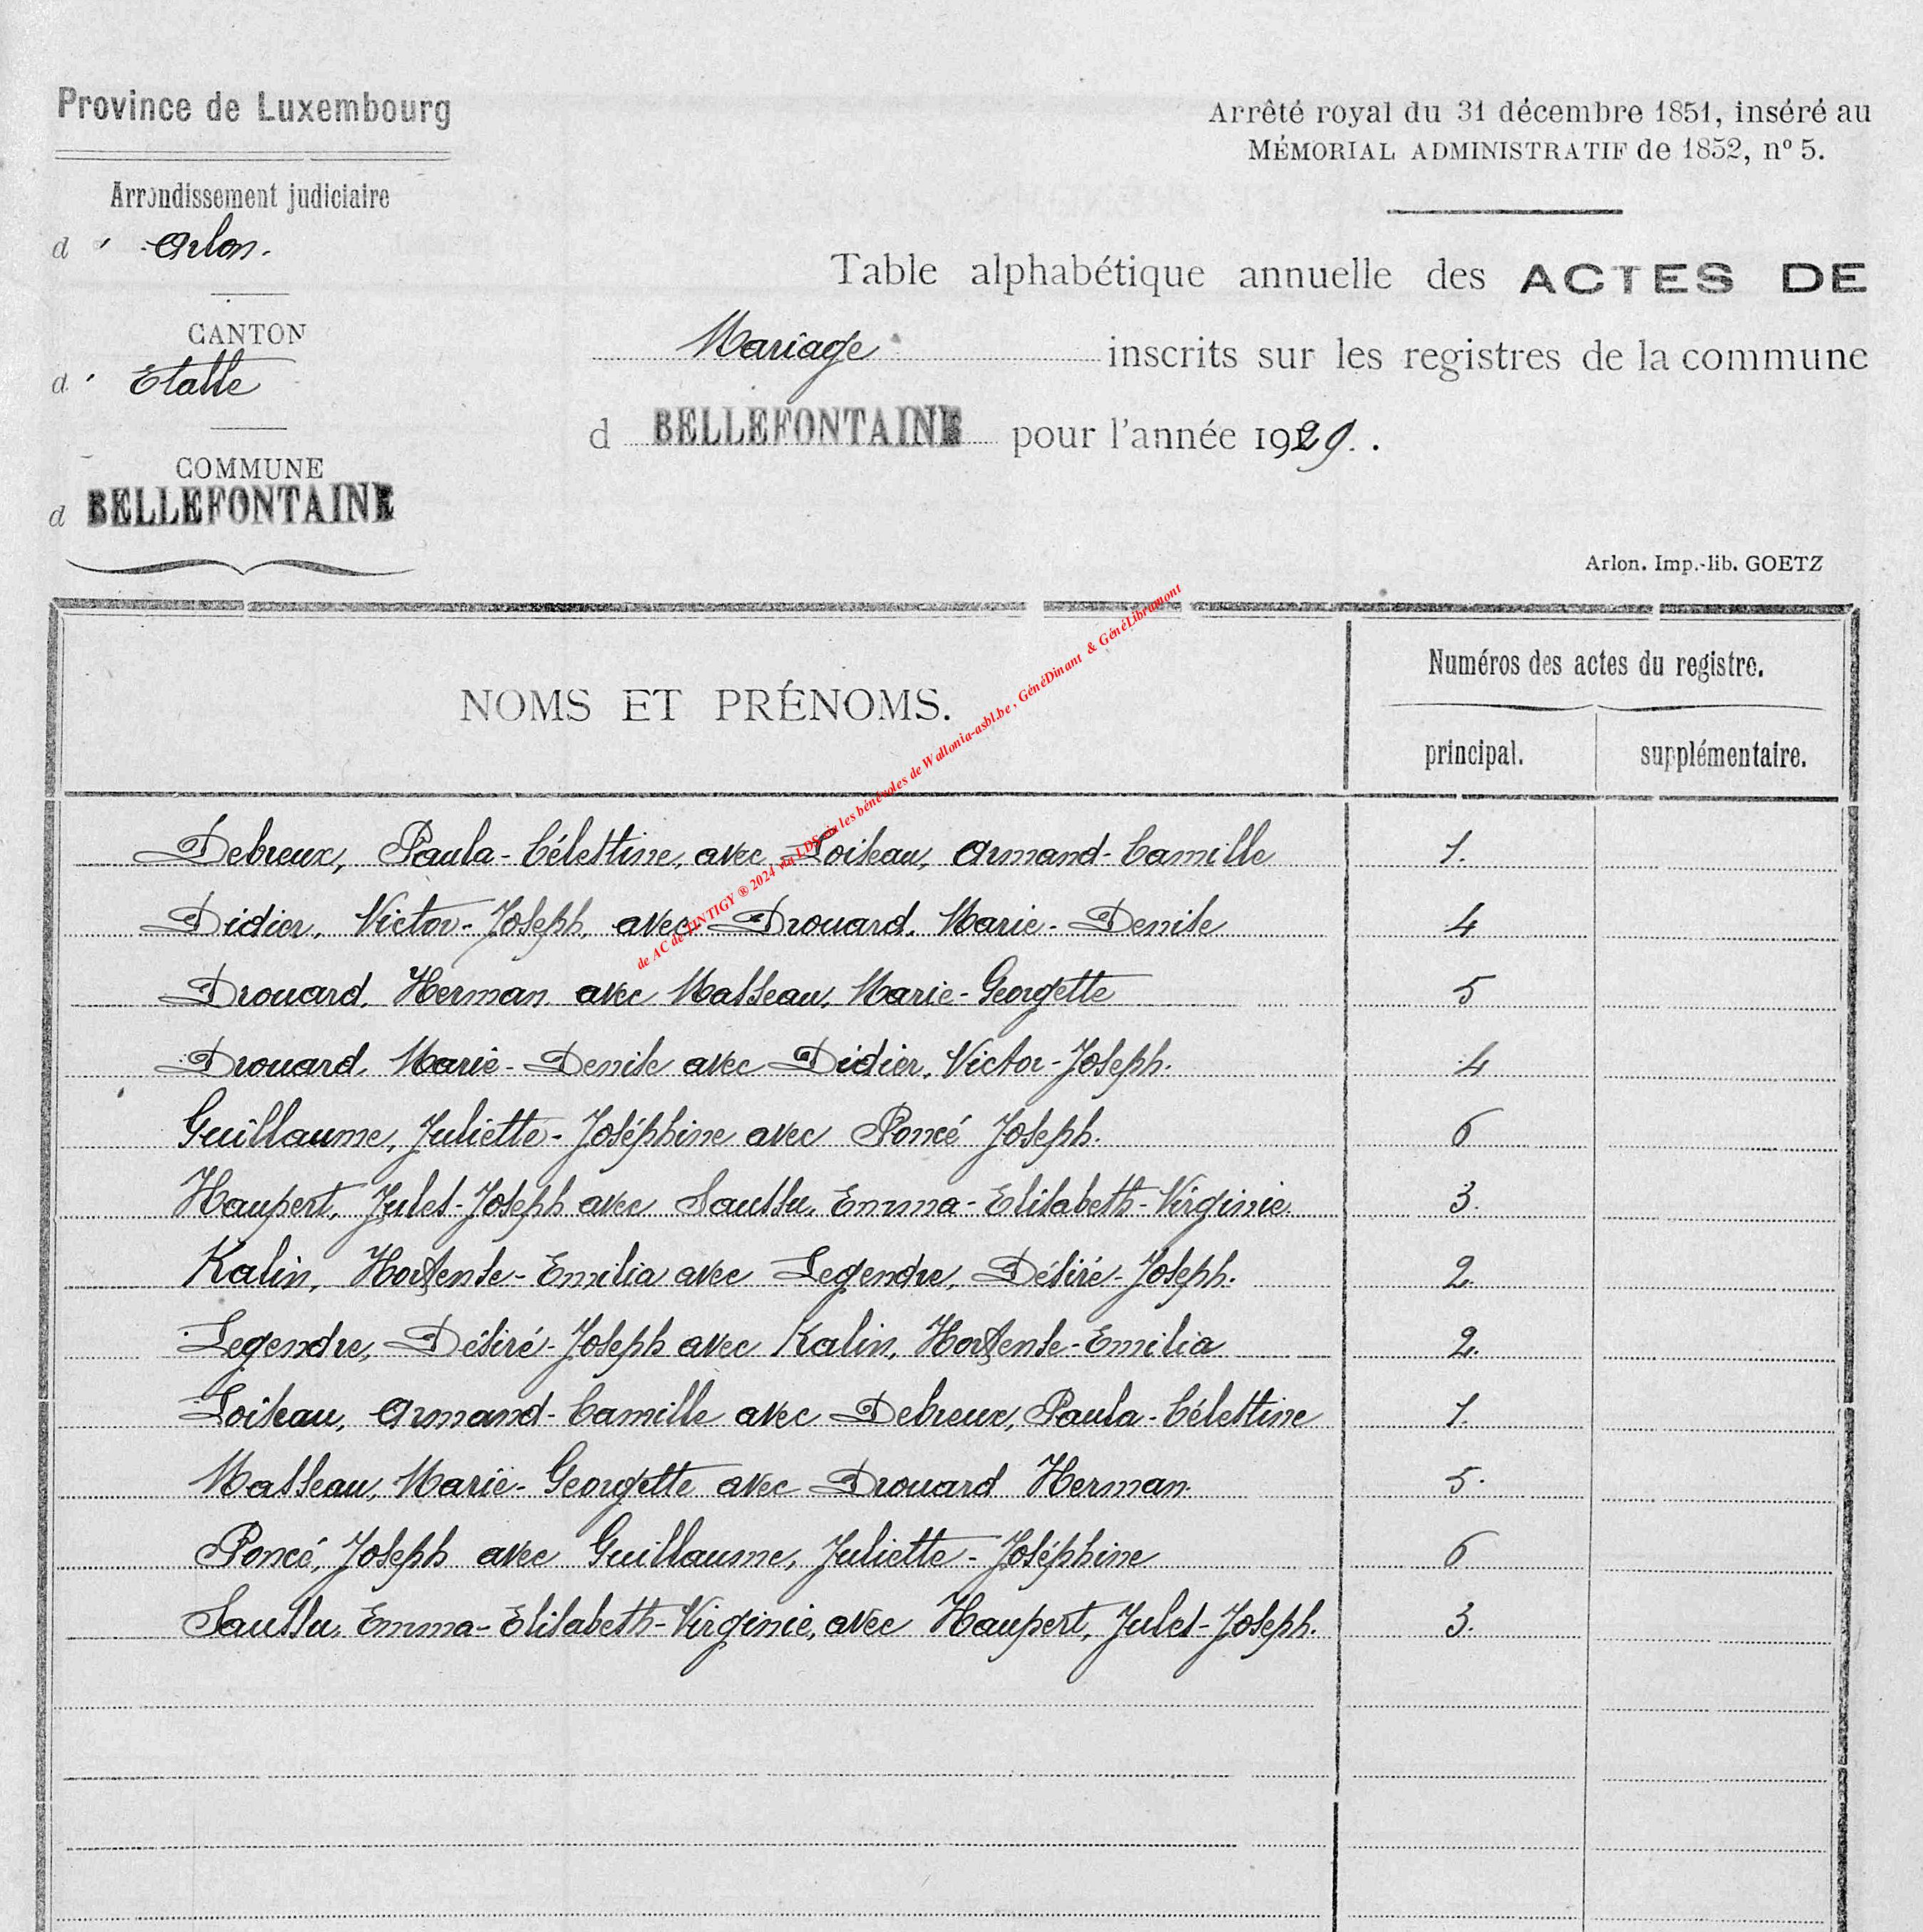 Province de Luxembourg
Arrondissement judiciaire
d ' Arlon.
CANTON
d ' Etalle
COMMUNE
d BELLEFONTAINE
Arrêté royal du 31 décembre 1851, inséré au
MÉMORIAL ADMINISTRATIF de 1852, nº 5.
Table alphabétique annuelle des ACTES DE
Mariage inscrits sur les registres de la commune
d BELLEFONTAINE pour l'année 1929.
Arlon. Imp.-lib. GOETZ
NOMS ET PRÉNOMS.
Numéros des actes du registre.
principal. supplémentaire.
de AC de TINTIGY ® 2024 via LDS via les bénévoles de Wallonia-asbl.be, GénéDinant & GénéLibramont
Debreux, Paula-Célestine, avec Loiseau, Armand-Camille 1.
Didier, Victor-Joseph, avec Drouard, Marie-Denise 4
Drouard, Herman avec Masseau, Marie-Georgette 5
Drouard, Marie-Denise avec Didier, Victor-Joseph. 4
Guillaume, Juliette-Joséphine avec Poncé Joseph. 6
Haupert, Jules-Joseph avec Saussu, Emma-Elisabeth-Virginie 3.
Kalin, Hortense-Emilia avec Legendre, Désiré-Joseph. 2.
Legendre, Désiré-Joseph avec Kalin, Hortense-Emilia 2.
Loiseau, Armand-Camille avec Debreux, Paula-Célestine 1.
Masseau, Marie-Georgette avec Drouard Herman 5.
Poncé, Joseph avec Guillaume, Juliette-Joséphine 6
Saussu, Emma-Elisabeth-Virginie, avec Haupert, Jules-Joseph. 3.